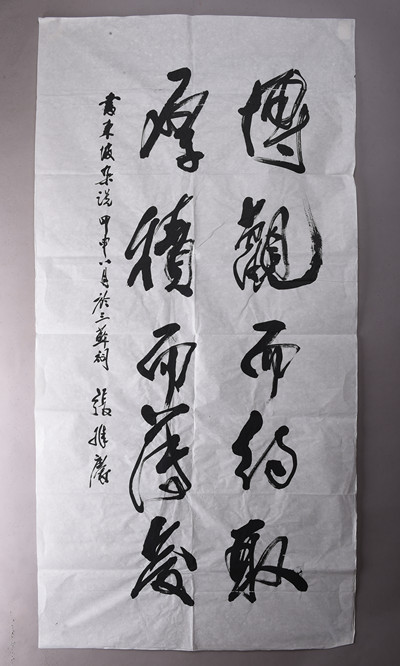 博觀而約取
厚積而薄發
書東坡雜說 甲申八月於三蘇祠 張